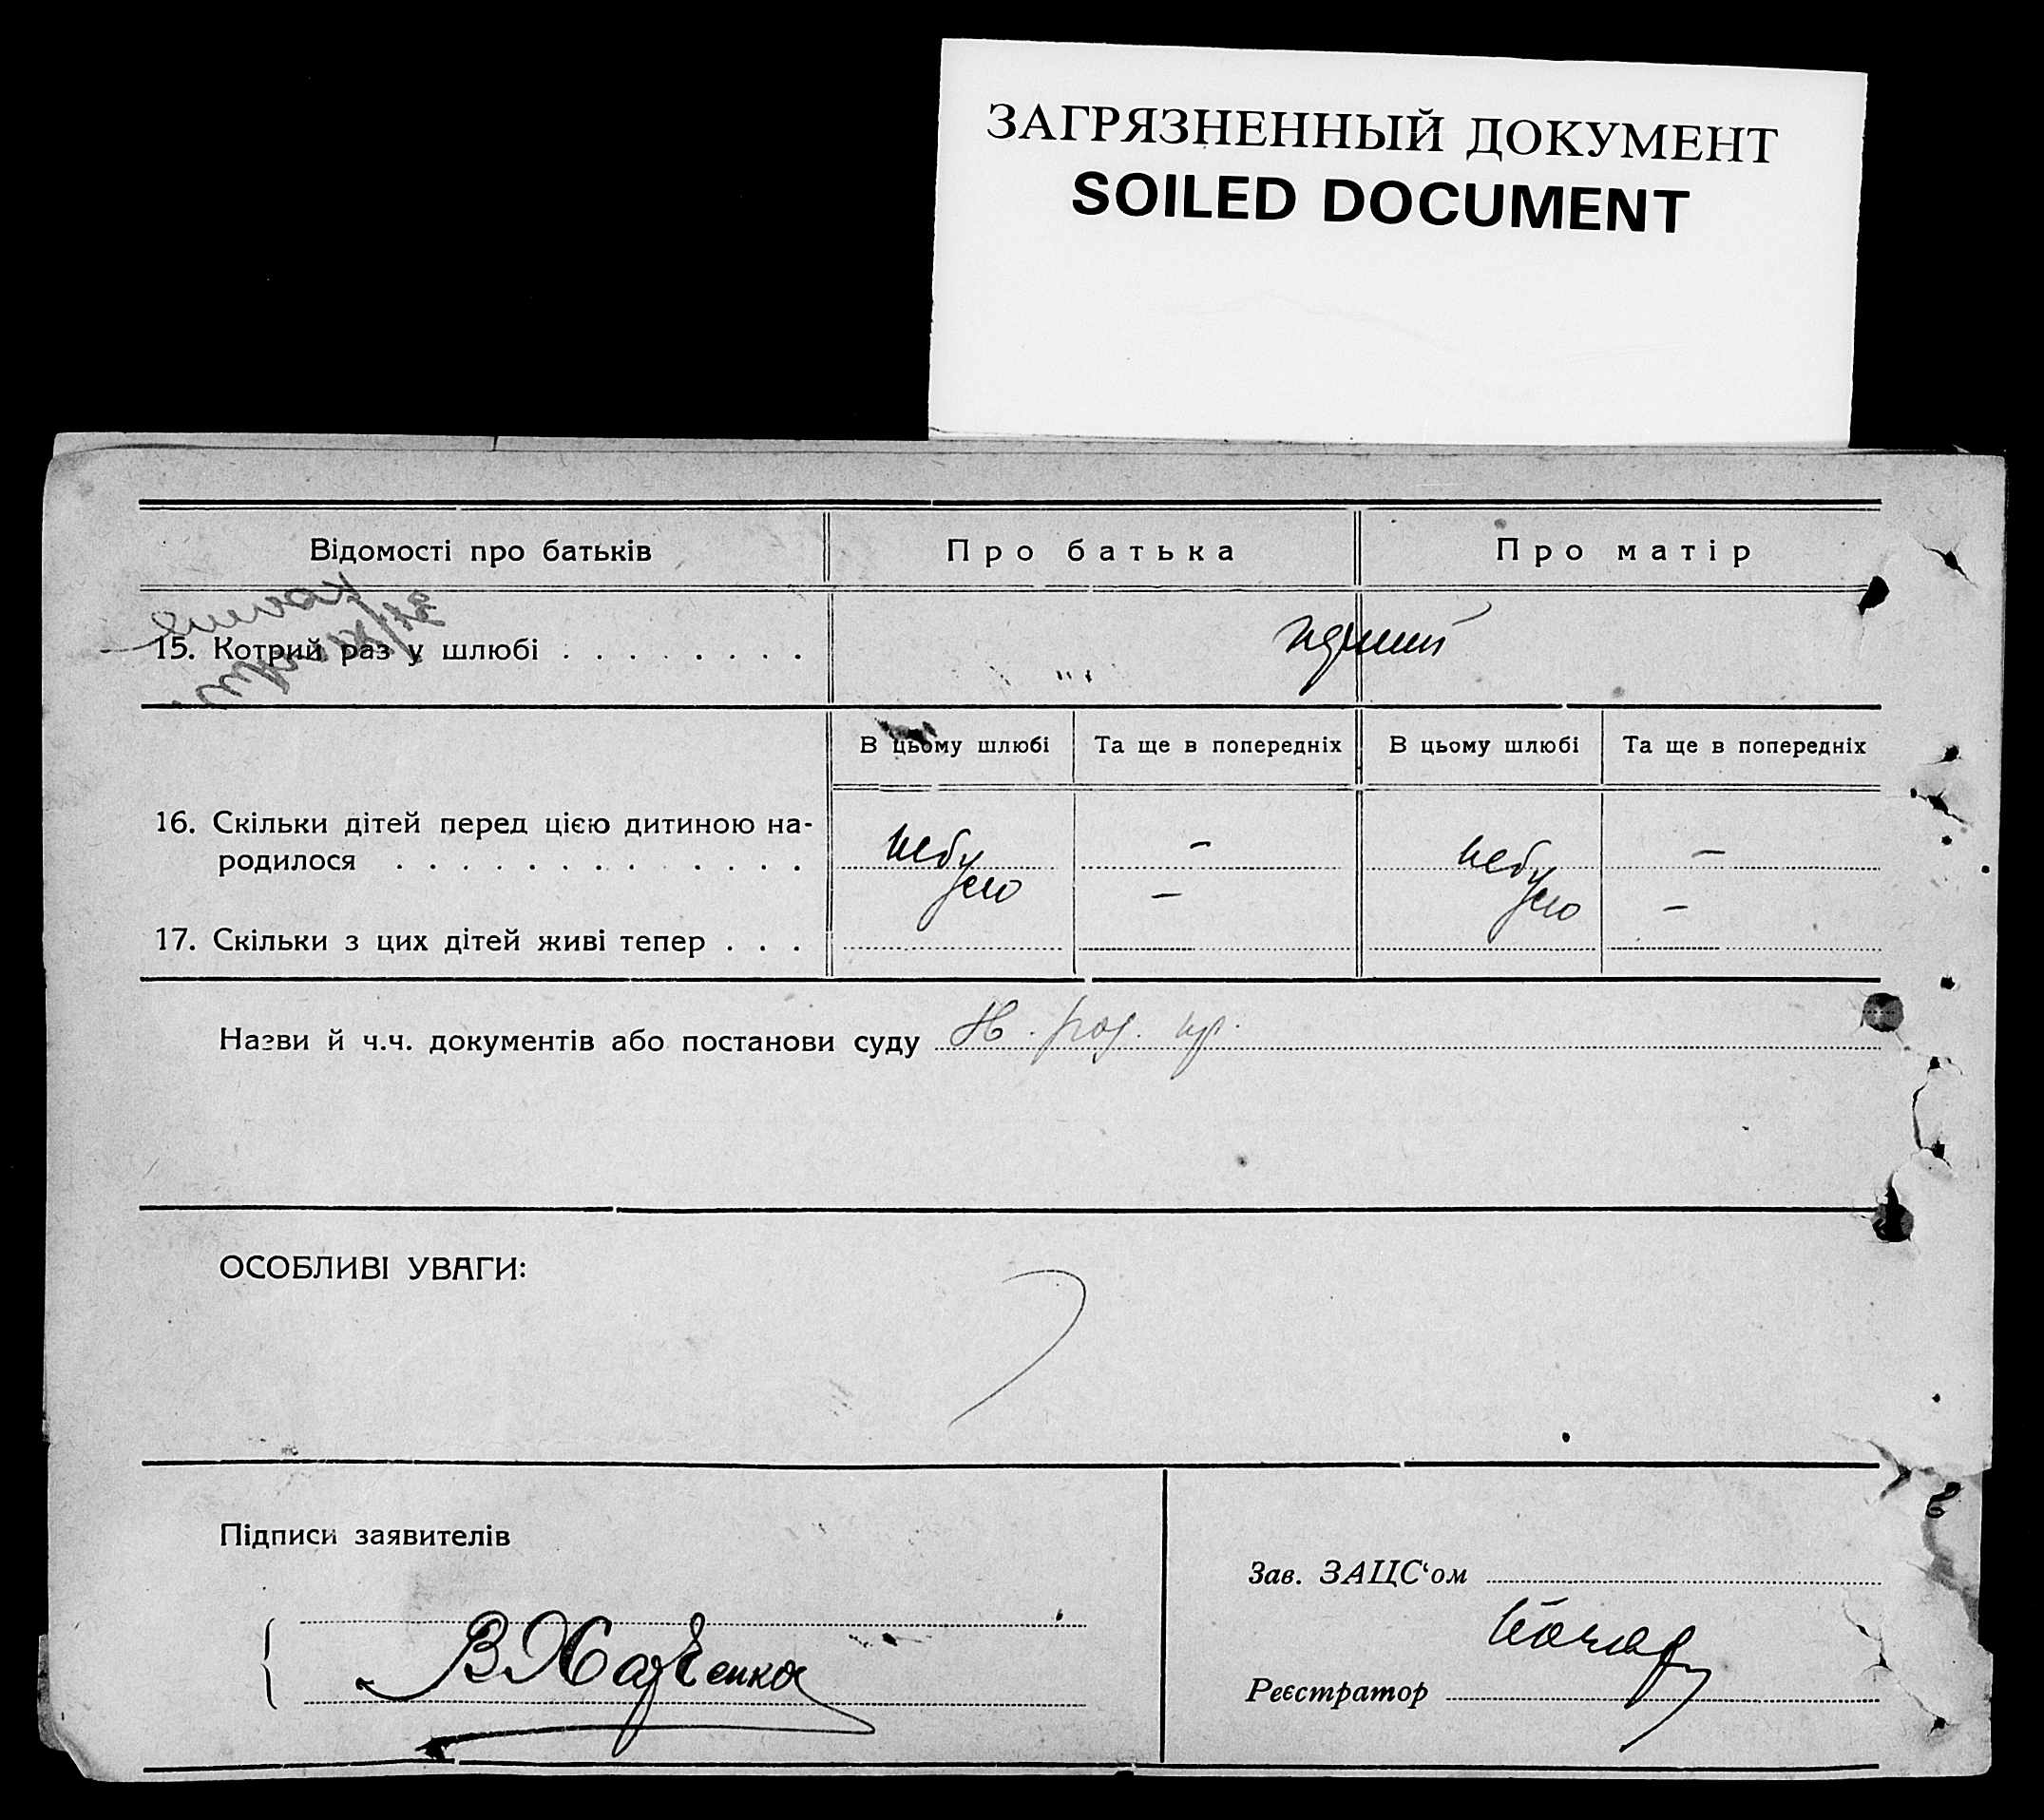 ЗАГРЯЗНЕННЫЙ ДОКУМЕНТ
SOILED DOCUMENT
Відомості про батьків
Про батька
Про матір
15. Котрий раз у шлюбі . . . . . . . .
В цьому шлюбі
Та ще в попередніх
В цьому шлюбі
Та ще в попередніх
16. Скільки дітей перед цією дитиною на-
родилося . . . . . . . . . . . . .
небу
–
небу
–
ло
–
ло
–
17. Скільки з цих дітей живі тепер . . .
Назви й ч.ч. документів або постанови суду
ОСОБЛИВІ УВАГИ:
Підписи заявителів
Зав. ЗАЦС‘ом
Реєстратор